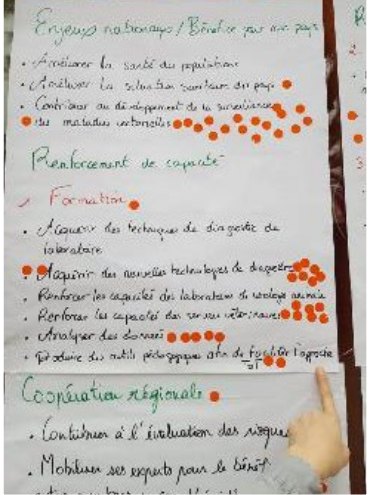 Enjeux nationaux / Bénéfice pour mon pays
• Améliorer la santé des populations
• Améliorer la situation sanitaire du pays
• Contribuer au développement de la surveillance
des maladies vectorielles
Renforcement de capacité
Formation
• Acquérir des techniques de diagnostic de
laboratoire
• Acquérir des nouvelles technologies de diagnostic
• Renforcer les capacités des laboratoires de virologie animale
• Renforcer les capacités des services vétérinaires
• Analyser des données
• Produire des outils pédagogiques afin de faciliter l'approche
Coopération régionale
• Contribuer à l'évaluation des risques
• Mobiliser ses experts pour le